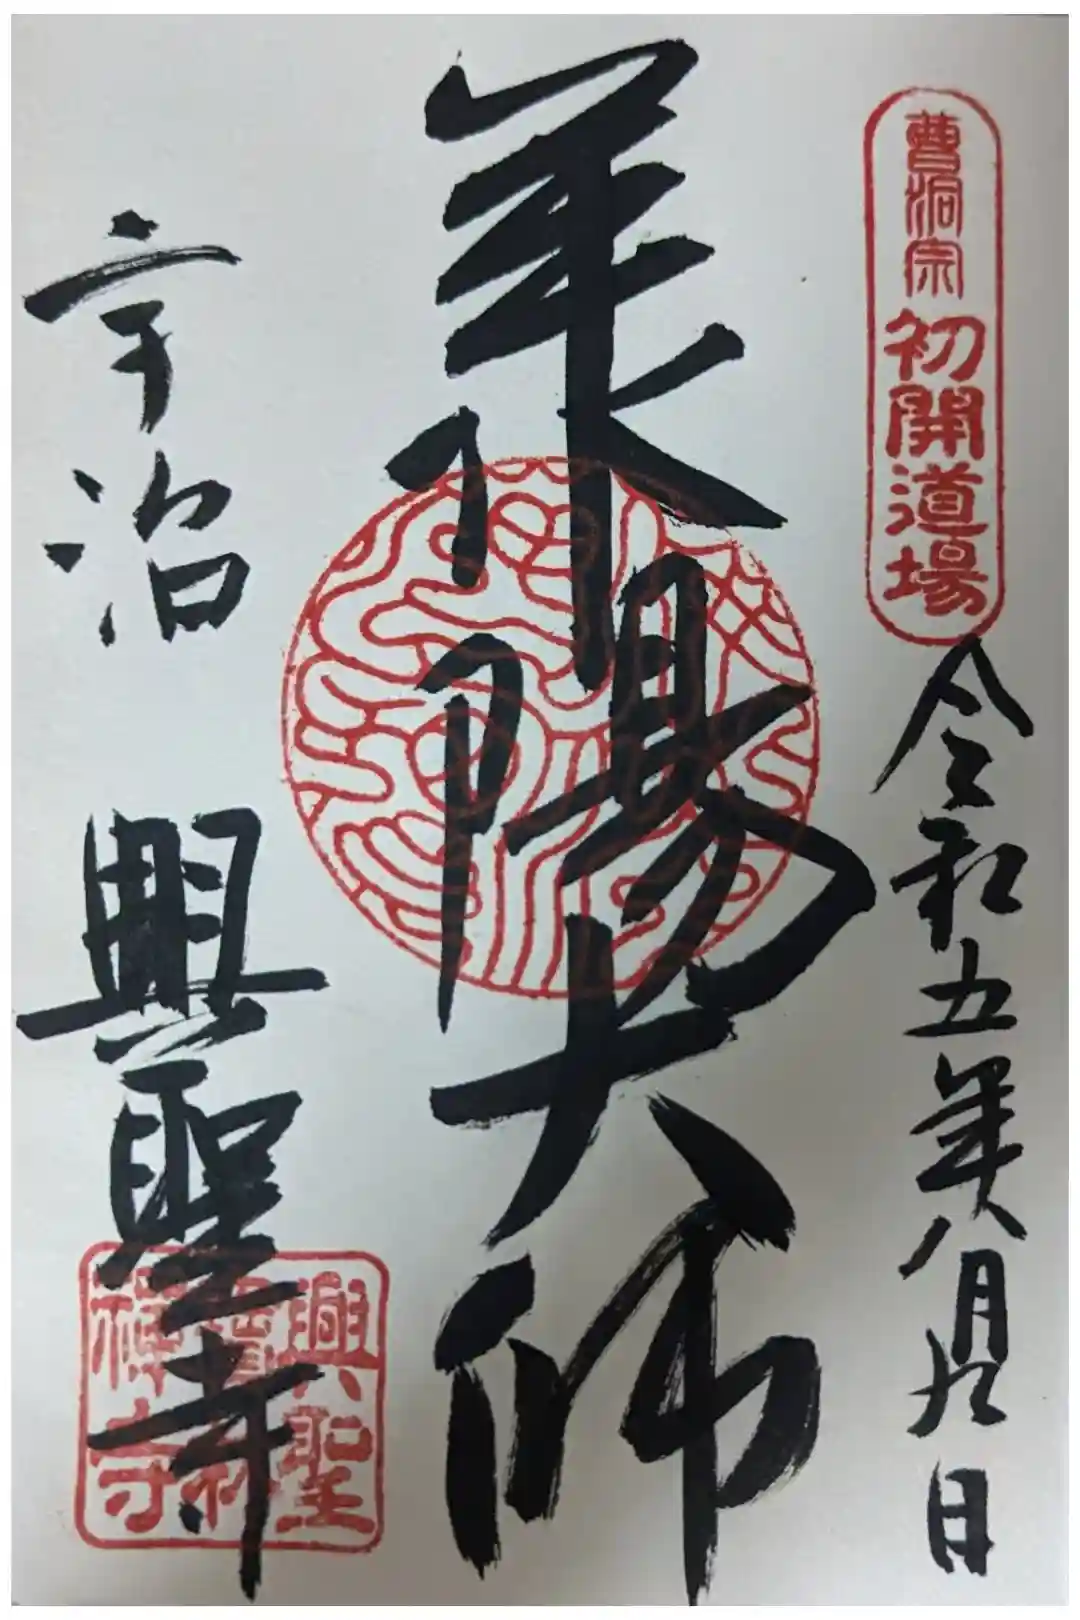 曹洞宗 初開道場
令和五年八月九日
承陽大師
宇治 興聖寺
興聖
禅寺